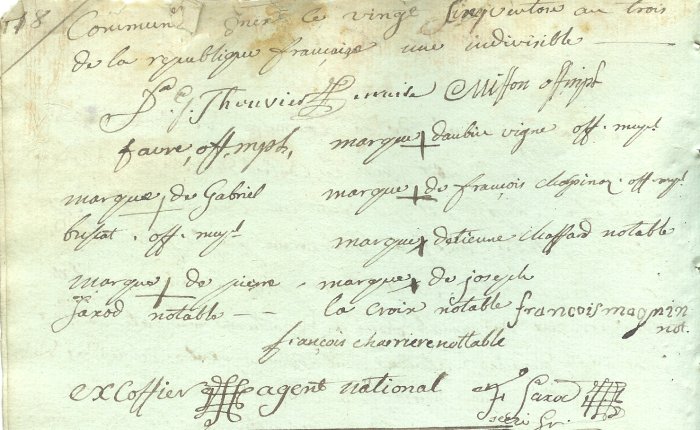 Commun gner le vingt cinq ventose an trois
de la republique françoise une indivisible
Thouvier Misson off mph
favre, off, mph,
marque daubin vigne off. mupl
marque de Gabriel
bussat. off. mupl
marque de françois chapinoz. off. mpl
marque detienne chaffard notable
marque de pierre
Jaxod notable
marque de joseph
la croix notable
francois magnin
not.
françois charriere nottable
excoffier agent national
F Jaxod
secri Gr.